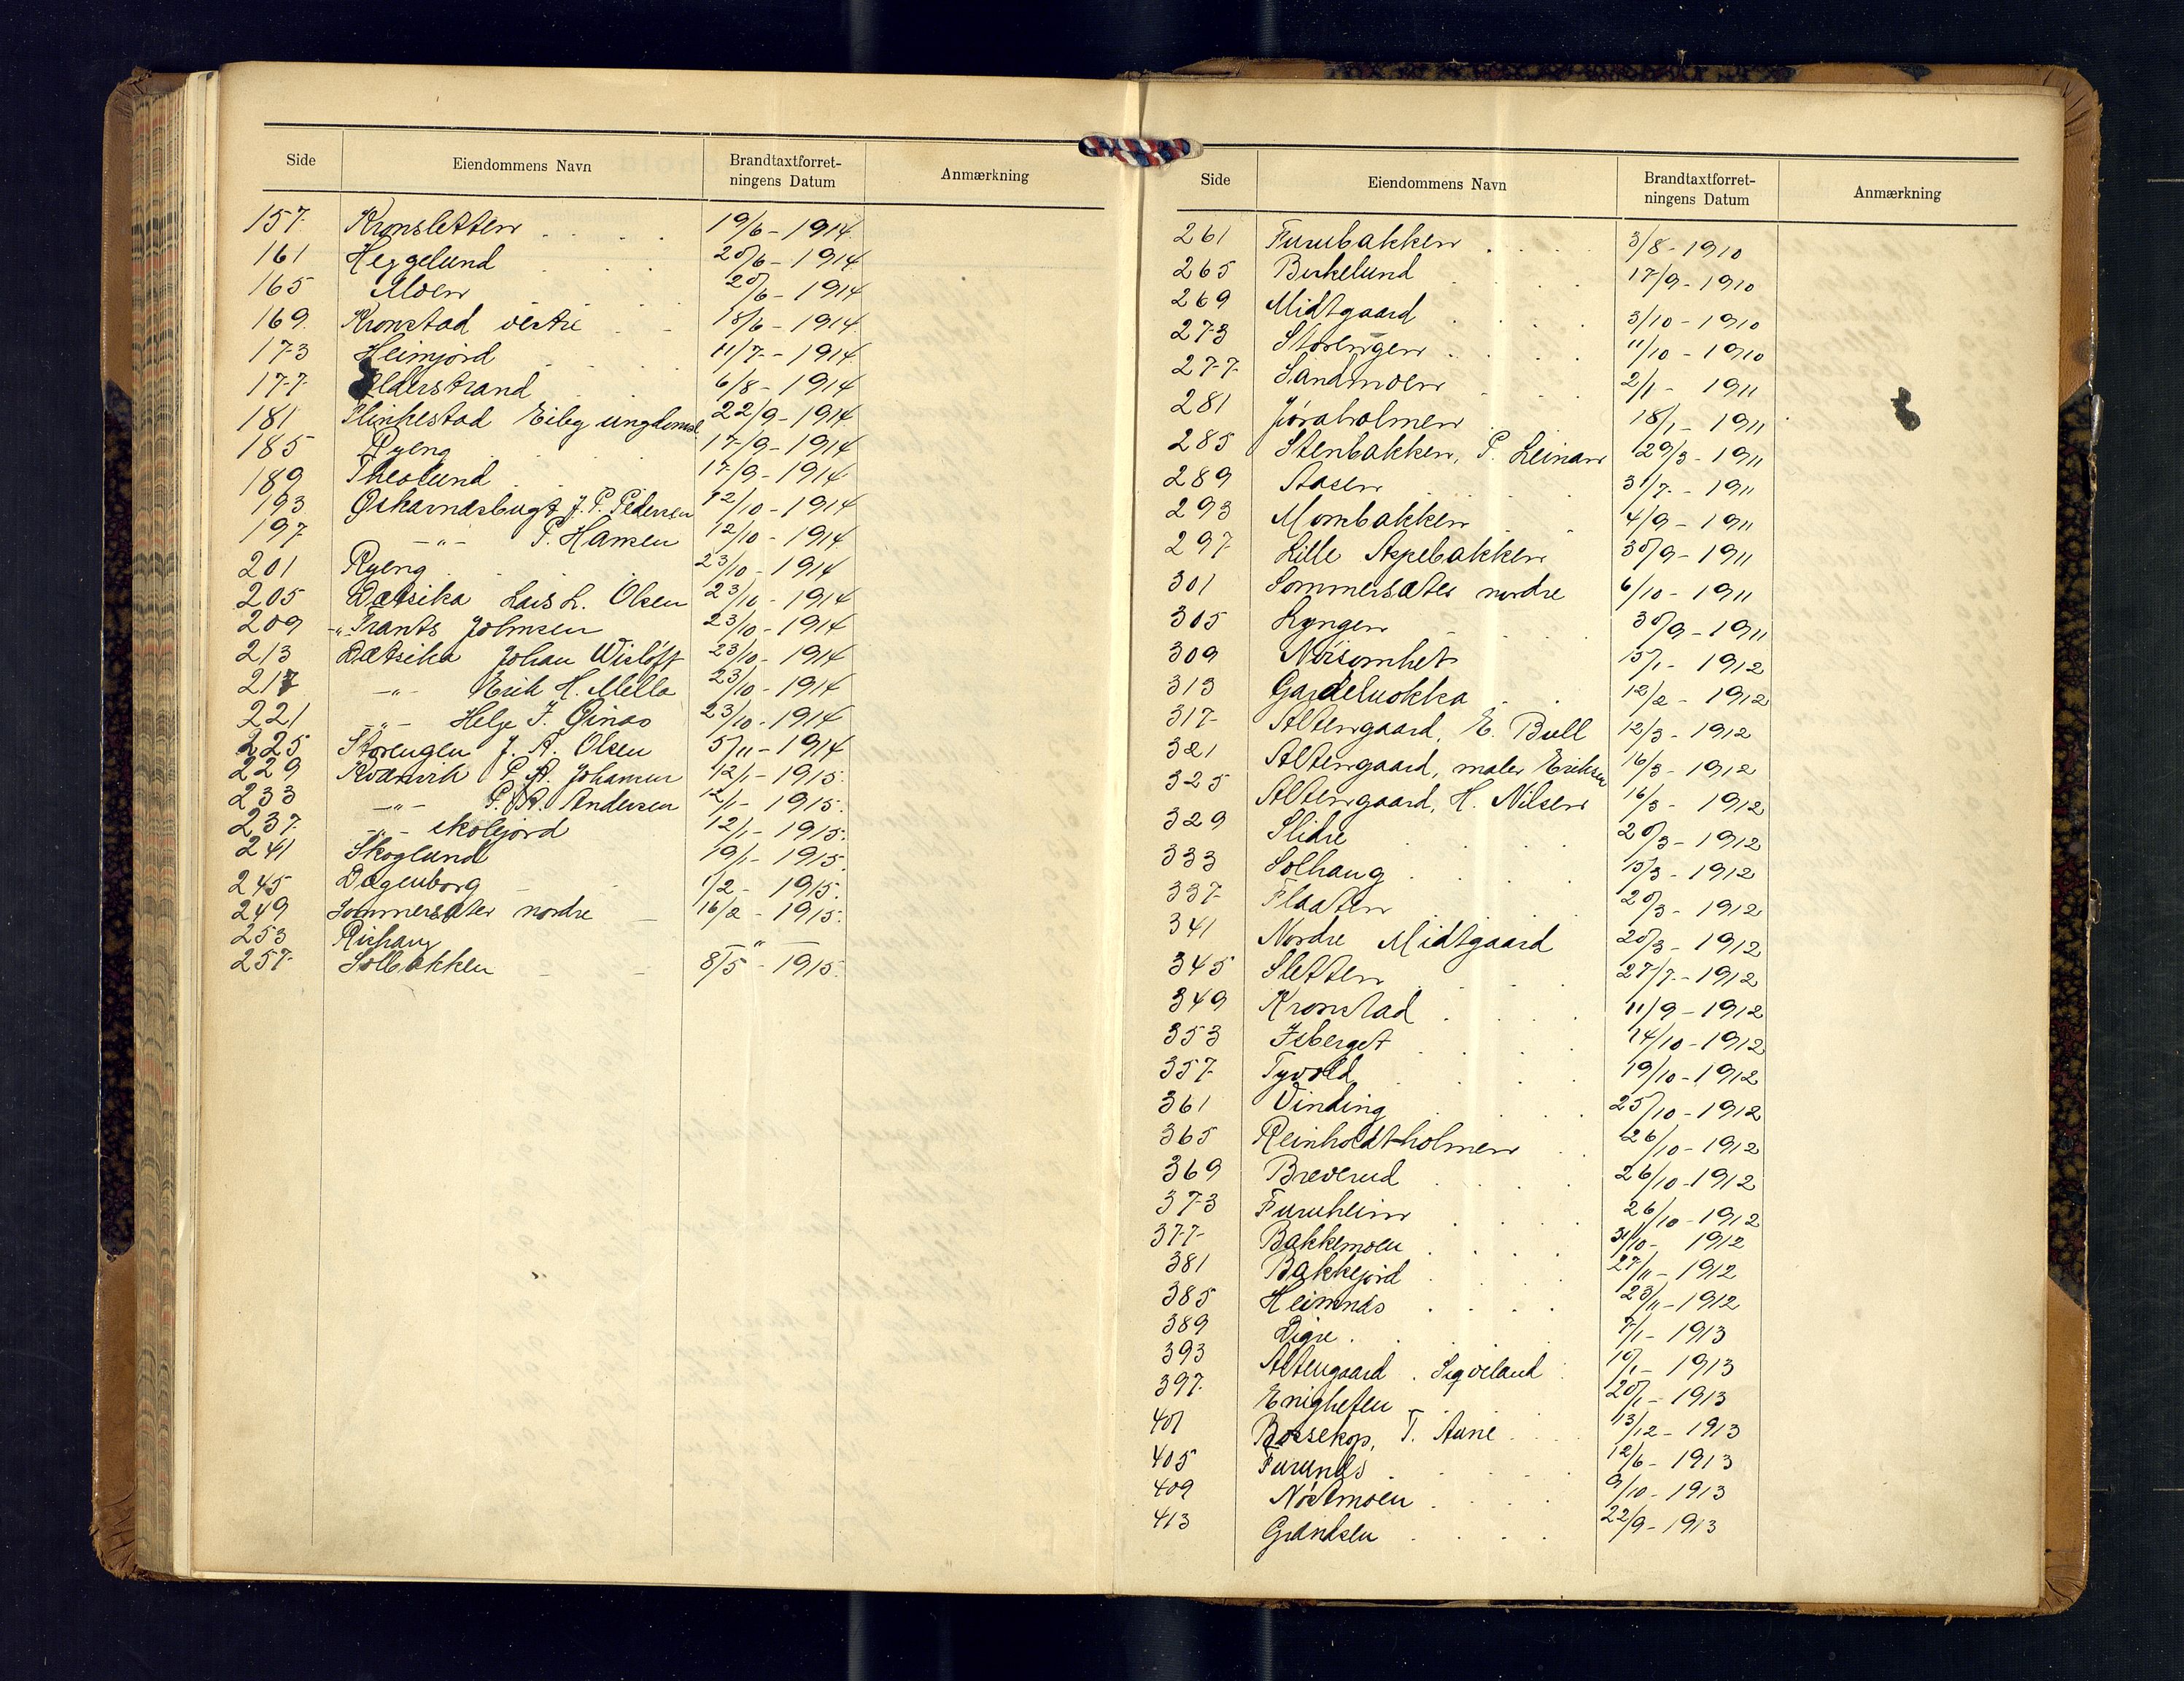 Side Eiendommens Navn Brandtaxtforret-ningens Datum Anmærkning
157 Kronsletten 19/6 - 1914
161 Heggelund 20/6 - 1914
165 Moen 20/6 - 1914
169 Kronstad vestre 18/6 - 1914
173 Heimjord 11/7 - 1914
177 Elderstrand 6/8 - 1914
181 Flinkestad Eiby ungdomsl 22/9 - 1914
185 Ryeng 17/9 - 1914
189 Theolund 17/9 - 1914
193 Øskarnæsbugt J. P. Pedersen 12/10 - 1914
197 -"- P. Hansen 12/10 - 1914
201 Ryeng 23/10 - 1914
205 Dætsika Lars L. Olsen 23/10 - 1914
209 -"- Frants Johnsen 23/10 - 1914
213 Dætsika Johan Wisløff 23/10 - 1914
217 -"- Erik H. Mella 23/10 - 1914
221 -"- Helge J. 23/10 - 1914
225 Storengen J. A. Olsen 5/11 - 1914
229 Kvænvik P. A. Johansen 12/1 - 1915
233 -"- P. A. Andersen 12/1 - 1915
237 -"- skolejord 12/1 - 1915
241 Skoglund 19/1 - 1915
245 Dagenborg 1/2 - 1915
249 Sommersæter nordre 16/2 - 1915
253 -"-
257 Solbakken 8/5 - 1915
Side Eiendommens Navn Brandtaxtforret-ningens Datum Anmærkning
261 Furubakken 3/8 - 1910
265 Birkelund 17/9 - 1910
269 Midtgaard 3/10 - 1910
273 Storengen 11/10 - 1910
277 Sandmoen 2/1 - 1911
281 Jøraholmen 18/1 - 1911
285 Stenbakken, P. Leinan 29/3 - 1911
289 Aasen 31/7 - 1911
293 Mombakken 4/9 - 1911
297 Lille Aspebakken 30/9 - 1911
301 Sommersæter nordre 6/10 - 1911
305 Lyngen 30/9 - 1911
309 Nøisomhet 15/1 - 1912
313 Gardeluokka 12/2 - 1912
317 Altengaard, E. Bull 12/3 - 1912
321 Altengaard, maler Eriksen 16/3 - 1912
325 Altengaard, H. Nilsen 16/3 - 1912
329 Slidre 20/3 - 1912
333 Solhaug 15/3 - 1912
337 Flaaten 20/3 - 1912
341 Nordre Midtgaard 20/3 - 1912
345 Sletten 27/7 - 1912
349 Kronstad 11/9 - 1912
353 Isberget 14/10 - 1912
357 Tyvold 19/10 - 1912
361 Vinding 25/10 - 1912
365 Reinholdtholmen 26/10 - 1912
369 Breverud 26/10 - 1912
373 Furuheim 26/10 - 1912
377 Bakkemoen 31/10 - 1912
381 Bakkejord 27/11 - 1912
385 Heimnæs 23/11 - 1912
389 Digre 7/1 - 1913
393 Altengaard. Sigveland 10/1 - 1913
397 Enigheten 20/1 - 1913
401 Bossekop, T. Aune 13/12 - 1913
405 Furunæs 12/6 - 1913
409 Nøstmoen 9/10 - 1913
413 Grandsen 22/9 - 1913